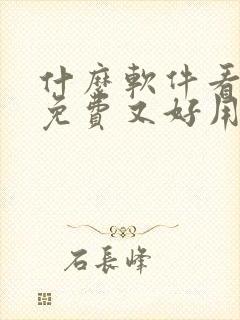 什麼軟件看
免費又好用
石長峰